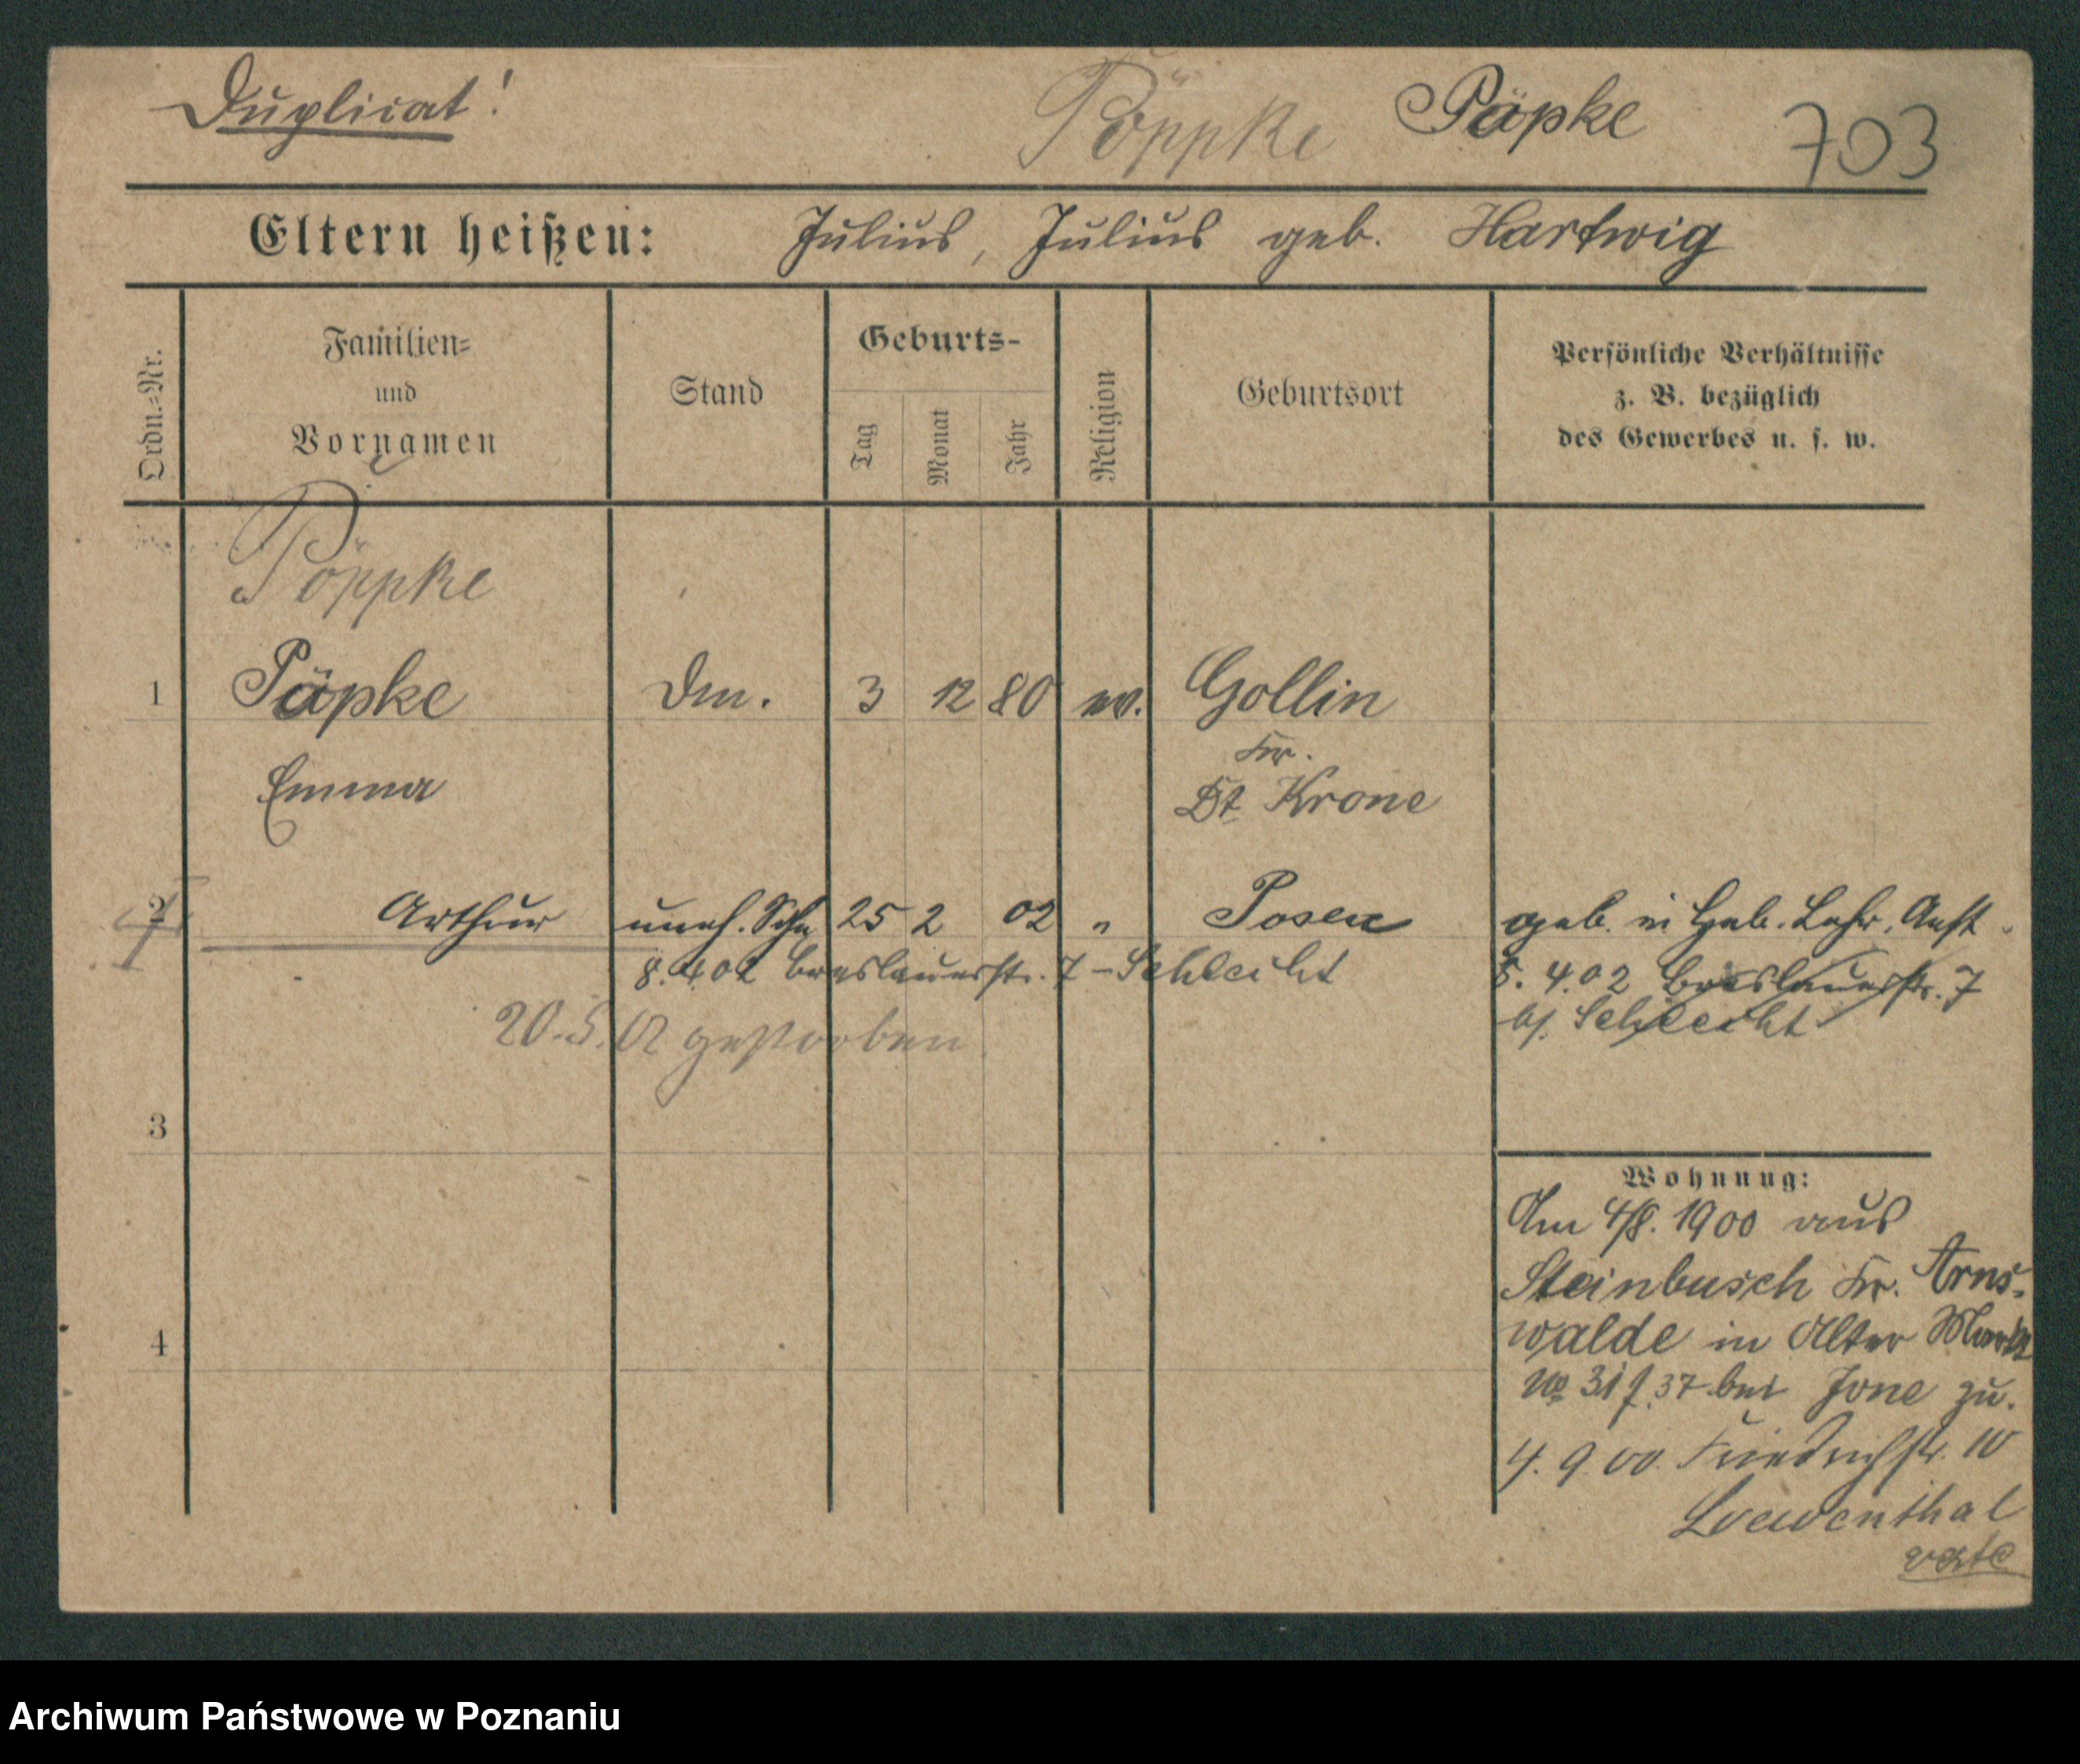 Duplicat!
Pöppke Päpke 703
Eltern heißen: Julius, Julius geb. Hartwig
Ordn.-Nr.
Familien-
und
Vornamen
Stand
Geburts-
Tag
Monat
Jahr
Religion
Geburtsort
Persönliche Verhältnisse
z. B. bezüglich
des Gewerbes u. s. w.
Pöppke
1 Päpke 3 12 80 ev. Gollin
Emma
Kr.
Dt Krone
2 Arthur uneh. Sohn 25 2 02 " Posen geb. in Heb. Lehr. Anst.
8.4.02 Breslauerstr. 7 - Schlecht
8. 4.02 Breslauerstr. 7
b/. Schlecht
20.5.02 gestorben.
3
Wohnung:
Am 4/8. 1900 aus
Steinbusch Kr. Arns-
walde in Alter Markt
No 31 37 bei Jone zu.
4. 9. 00. Friedrichstr. 10
Loewenthal
4
Archiwum Państwowe w Poznaniu